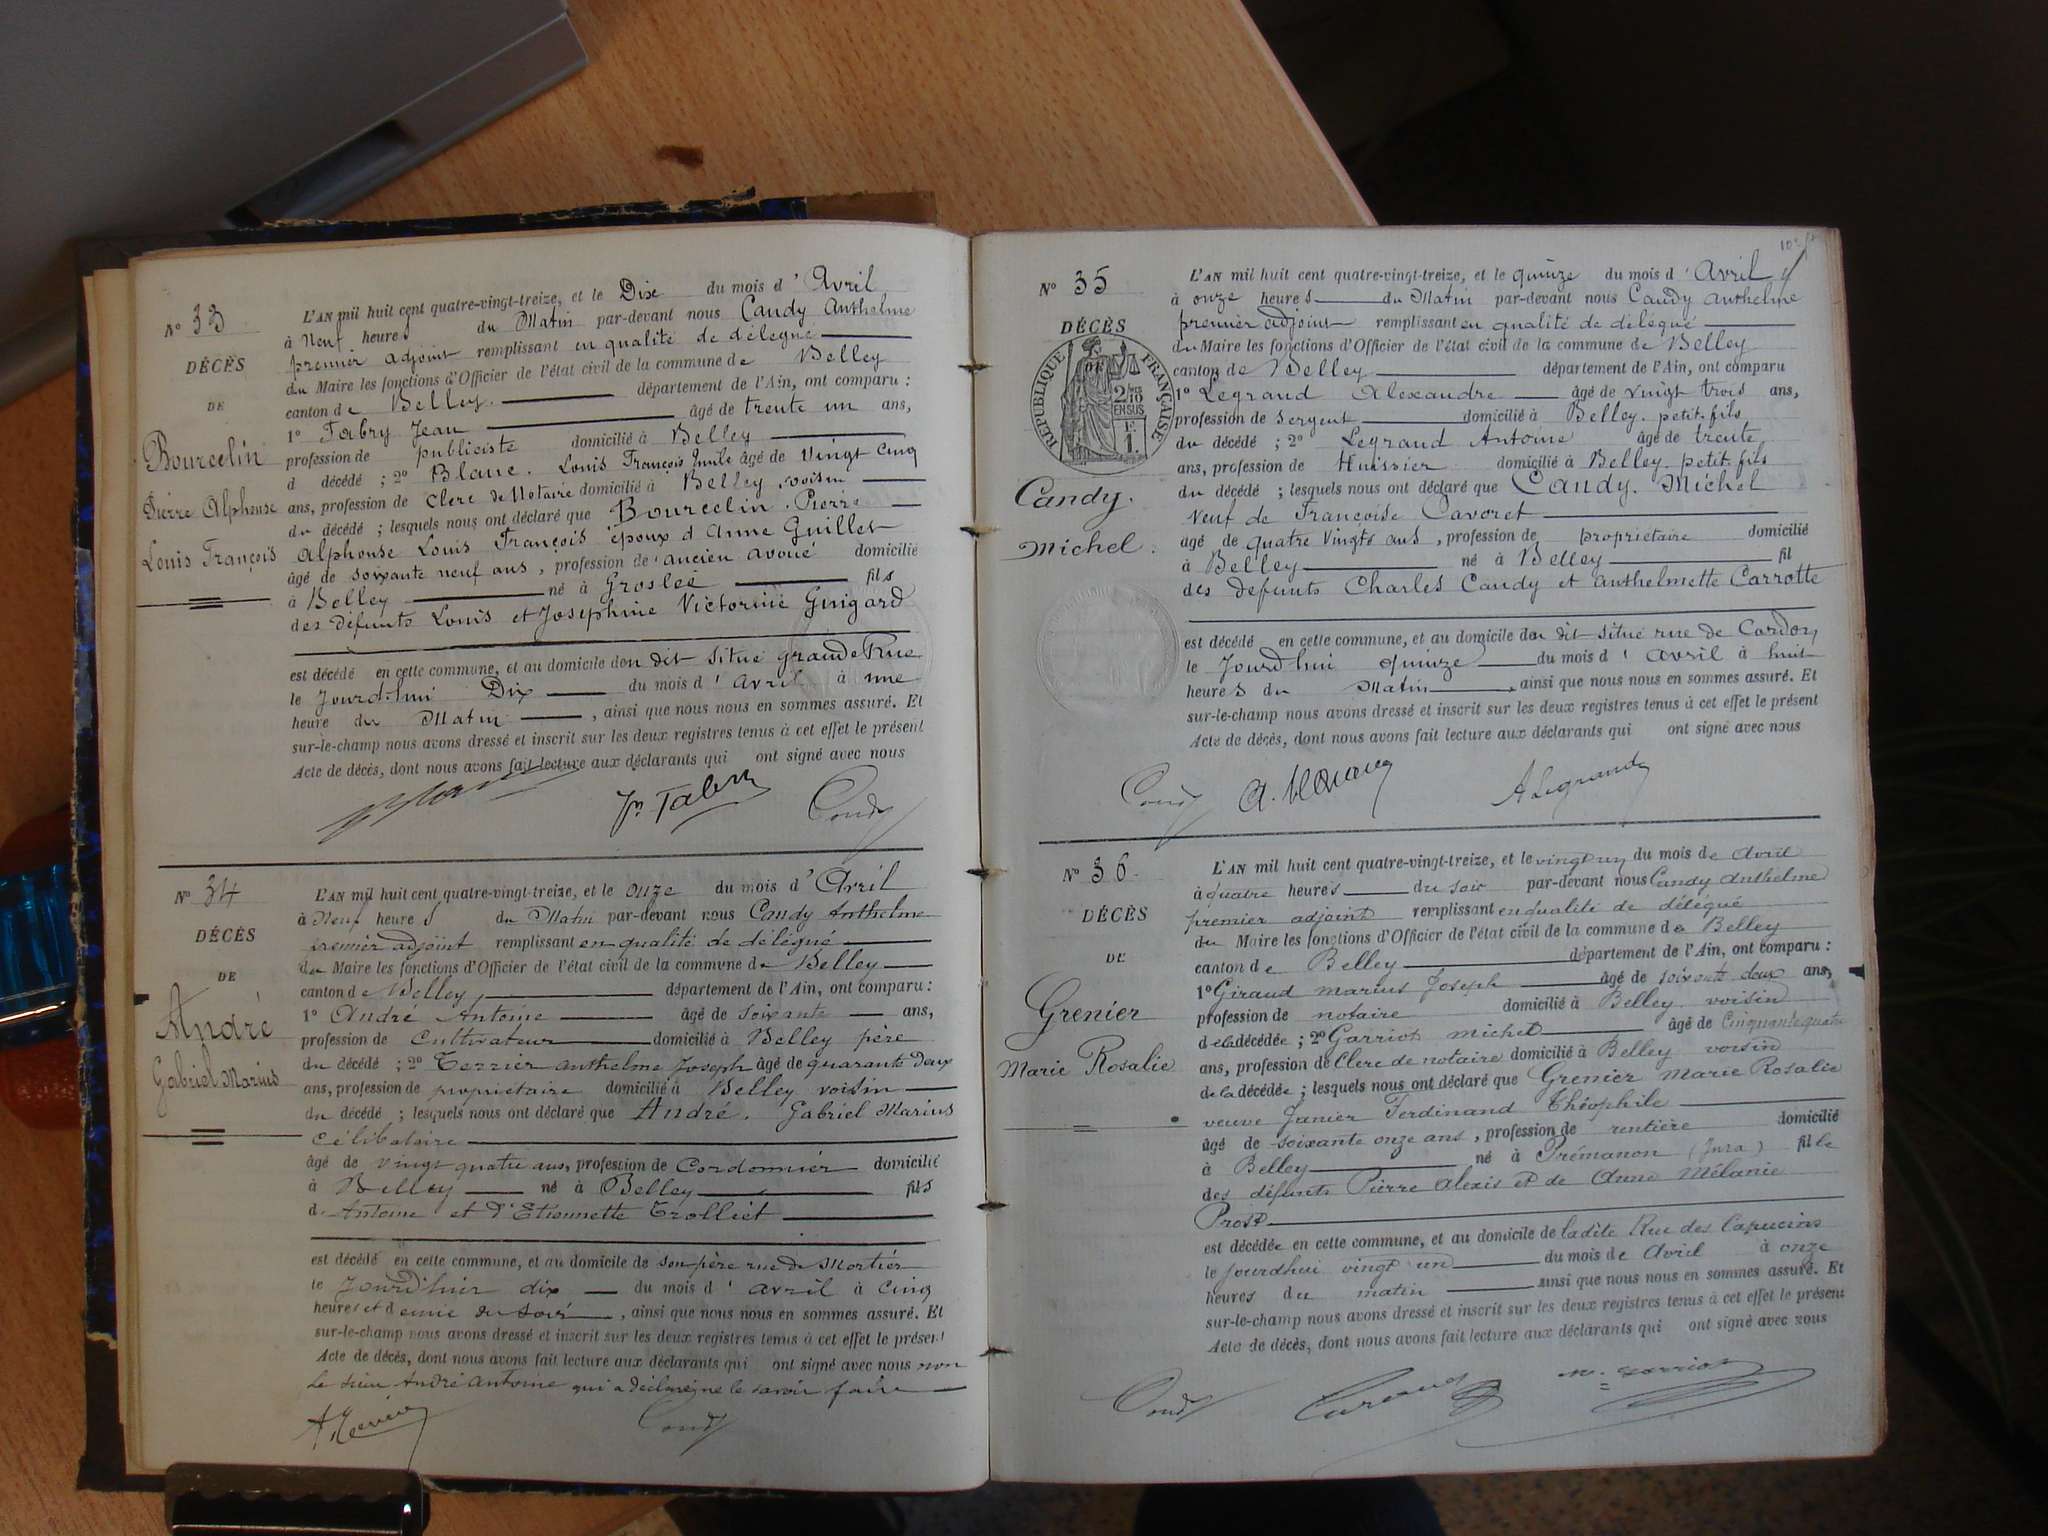 N° 33
DÉCÈS
DE
Bourcelin
Pierre Alphonse
Louis François
L'AN mil huit cent quatre-vingt-treize, et le Dix du mois d'Avril
à Neuf heures du Matin par-devant nous Candy Anthelme
premier adjoint remplissant en qualité de délégué
du Maire les fonctions d'Officier de l'état civil de la commune de Belley
canton de Belley. département de l'Ain, ont comparu :
1° Fabry Jean âgé de trente un ans,
profession de publiciste domicilié à Belley
d décédé ; 2° Blanc. Louis François Emile âgé de vingt cinq
ans, profession de Clerc de Notaire domicilié à Belley, voisin
du décédé ; lesquels nous ont déclaré que Bourcelin. Pierre
Alphonse Louis François époux d'Anne Guillet
âgé de soixante neuf ans, profession de ancien avoué domicilié
à Belley né à Groslée fils
des défunts Louis et Joséphine Victorine Guigard
est décédé en cette commune, et au domicile du dit situé grande Rue
le Jourd'hui Dix du mois d'avril à une
heure du Matin, ainsi que nous nous en sommes assuré. Et
sur-le-champ nous avons dressé et inscrit sur les deux registres tenus à cet effet le présent
Acte de décès, dont nous avons fait lecture aux déclarants qui ont signé avec nous
Jn Fabry Candy
N° 34
DÉCÈS
DE
André
Gabriel Marius
L'AN mil huit cent quatre-vingt-treize, et le onze du mois d'Avril
à Neuf heures du Matin par-devant nous Candy Anthelme
premier adjoint remplissant en qualité de délégué
du Maire les fonctions d'Officier de l'état civil de la commune de Belley
canton de Belley département de l'Ain, ont comparu :
1° André Antoine âgé de soixante ans,
profession de Cultivateur domicilié à Belley père
du décédé ; 2° Terrier anthelme Joseph âgé de quarante deux
ans, profession de propriétaire domicilié à Belley voisin
du décédé ; lesquels nous ont déclaré que André. Gabriel Marius
célibataire
âgé de vingt quatre ans, profession de Cordonnier domicilié
à Belley né à Belley fils
d'Antoine et d'Etiennette Trolliet
est décédé en cette commune, et au domicile de son père rue de Mortier
le Jourd'hier dix du mois d'avril à cinq
heures et demie du soir, ainsi que nous nous en sommes assuré. Et
sur-le-champ nous avons dressé et inscrit sur les deux registres tenus à cet effet le présent
Acte de décès, dont nous avons fait lecture aux déclarants qui ont signé avec nous non
le sieur André Antoine qui a déclaré ne le savoir faire
Candy
N° 35
DÉCÈS
DE
RÉPUBLIQUE FRANÇAISE
2/10
EN SUS
Candy.
Michel.
L'AN mil huit cent quatre-vingt-treize, et le quinze du mois d'Avril
à onze heures du Matin par-devant nous Candy anthelme
premier adjoint remplissant en qualité de délégué
du Maire les fonctions d'Officier de l'état civil de la commune de Belley
canton de Belley département de l'Ain, ont comparu
1° Legrand Alexandre âgé de vingt trois ans,
profession de Sergent domicilié à Belley. petit-fils
du décédé ; 2° Legrand Antoine âgé de trente
ans, profession de Huissier domicilié à Belley. petit fils
du décédé ; lesquels nous ont déclaré que Candy. Michel
veuf de Françoise Cavoret
âgé de quatre vingts ans, profession de propriétaire domicilié
à Belley né à Belley fil
des défunts Charles Candy et anthelmette Carrotte
est décédé en cette commune, et au domicile du dit situé rue de Cordon
le Jourd'hui quinze du mois d'avril à huit
heures du Matin, ainsi que nous nous en sommes assuré. Et
sur-le-champ nous avons dressé et inscrit sur les deux registres tenus à cet effet le présent
Acte de décès, dont nous avons fait lecture aux déclarants qui ont signé avec nous
Candy A Legrand
N° 36
DÉCÈS
DE
Grenier
Marie Rosalie
L'AN mil huit cent quatre-vingt-treize, et le vingt un du mois de Avril
à quatre heures du soir par-devant nous Candy Anthelme
premier adjoint remplissant en qualité de délégué
du Maire les fonctions d'Officier de l'état civil de la commune de Belley
canton de Belley département de l'Ain, ont comparu :
1° Giraud Marius Joseph âgé de soixante deux ans,
profession de notaire domicilié à Belley voisin
de la décédée ; 2° Garriot michel âgé de Cinquante quatre
ans, profession de Clerc de notaire domicilié à Belley voisin
de la décédée ; lesquels nous ont déclaré que Grenier Marie Rosalie
veuve Janier Ferdinand Théophile
âgé de soixante onze ans, profession de rentière domicilié
à Belley né à Prémanon (Jura) fille
des défunts Pierre Alexis et de Anne Mélanie
Prost
est décédée en cette commune, et au domicile de ladite Rue des Capucins
le jourdhui vingt un du mois de Avril à onze
heures du matin ainsi que nous nous en sommes assuré. Et
sur-le-champ nous avons dressé et inscrit sur les deux registres tenus à cet effet le présent
Acte de décès, dont nous avons fait lecture aux déclarants qui ont signé avec nous
Candy M. Garriot